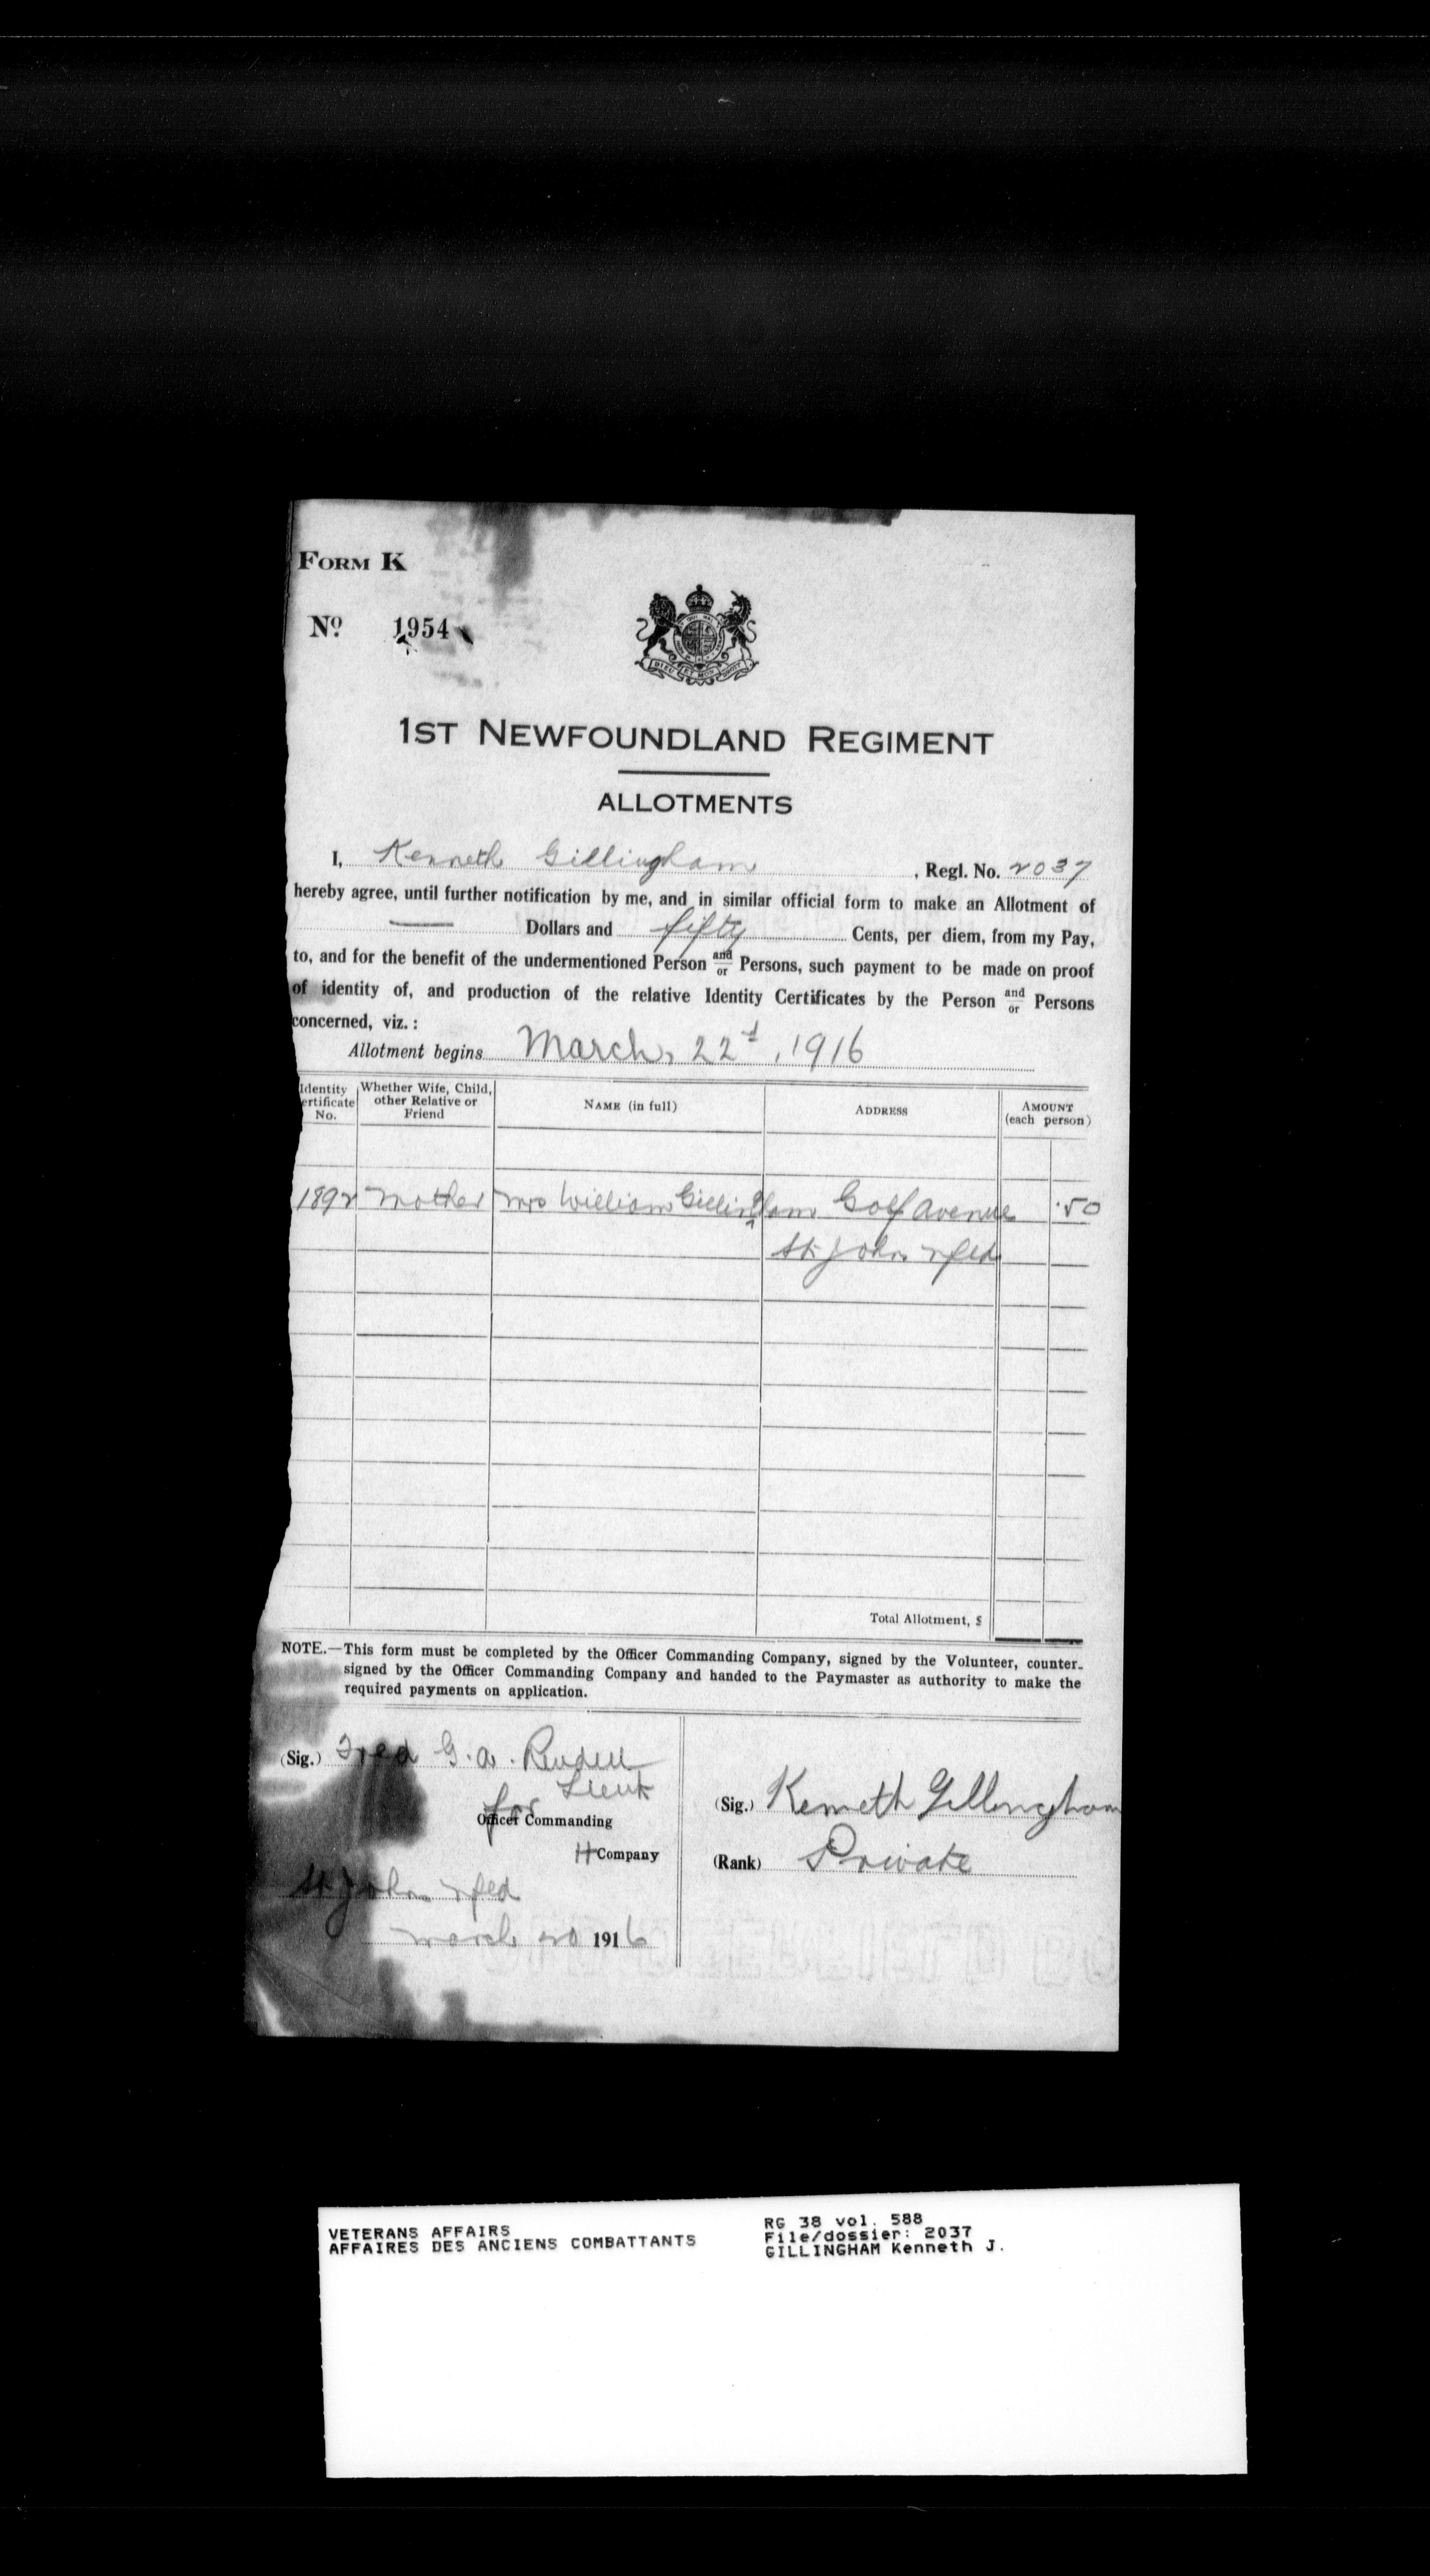 FORM K
Nº 1954
DIEU ET MON DROIT
1ST NEWFOUNDLAND REGIMENT
ALLOTMENTS
I, Kenneth Gillingham, Regl. No. 2037
hereby agree, until further notification by me, and in similar official form to make an Allotment of
— Dollars and fifty Cents, per diem, from my Pay,
to, and for the benefit of the undermentioned Person and/or Persons, such payment to be made on proof
of identity of, and production of the relative Identity Certificates by the Person and/or Persons
concerned, viz.:
Allotment begins March, 22d, 1916
Identity ertificate No. Whether Wife, Child, other Relative or Friend NAME (in full) ADDRESS AMOUNT (each person)
1892 Mother Mrs William Gillingham Golf Avenue .50
St. Johns Nfld
Total Allotment, $
NOTE.—This form must be completed by the Officer Commanding Company, signed by the Volunteer, counter-
signed by the Officer Commanding Company and handed to the Paymaster as authority to make the
required payments on application.
(Sig.) Fred G. A. Rendell
Lieut
for
Officer Commanding
H Company
St Johns Nfld
March 20 1916
(Sig.) Kenneth Gillingham
(Rank) Private
VETERANS AFFAIRS
AFFAIRES DES ANCIENS COMBATTANTS
RG 38 vol. 588
File/dossier: 2037
GILLINGHAM Kenneth J.